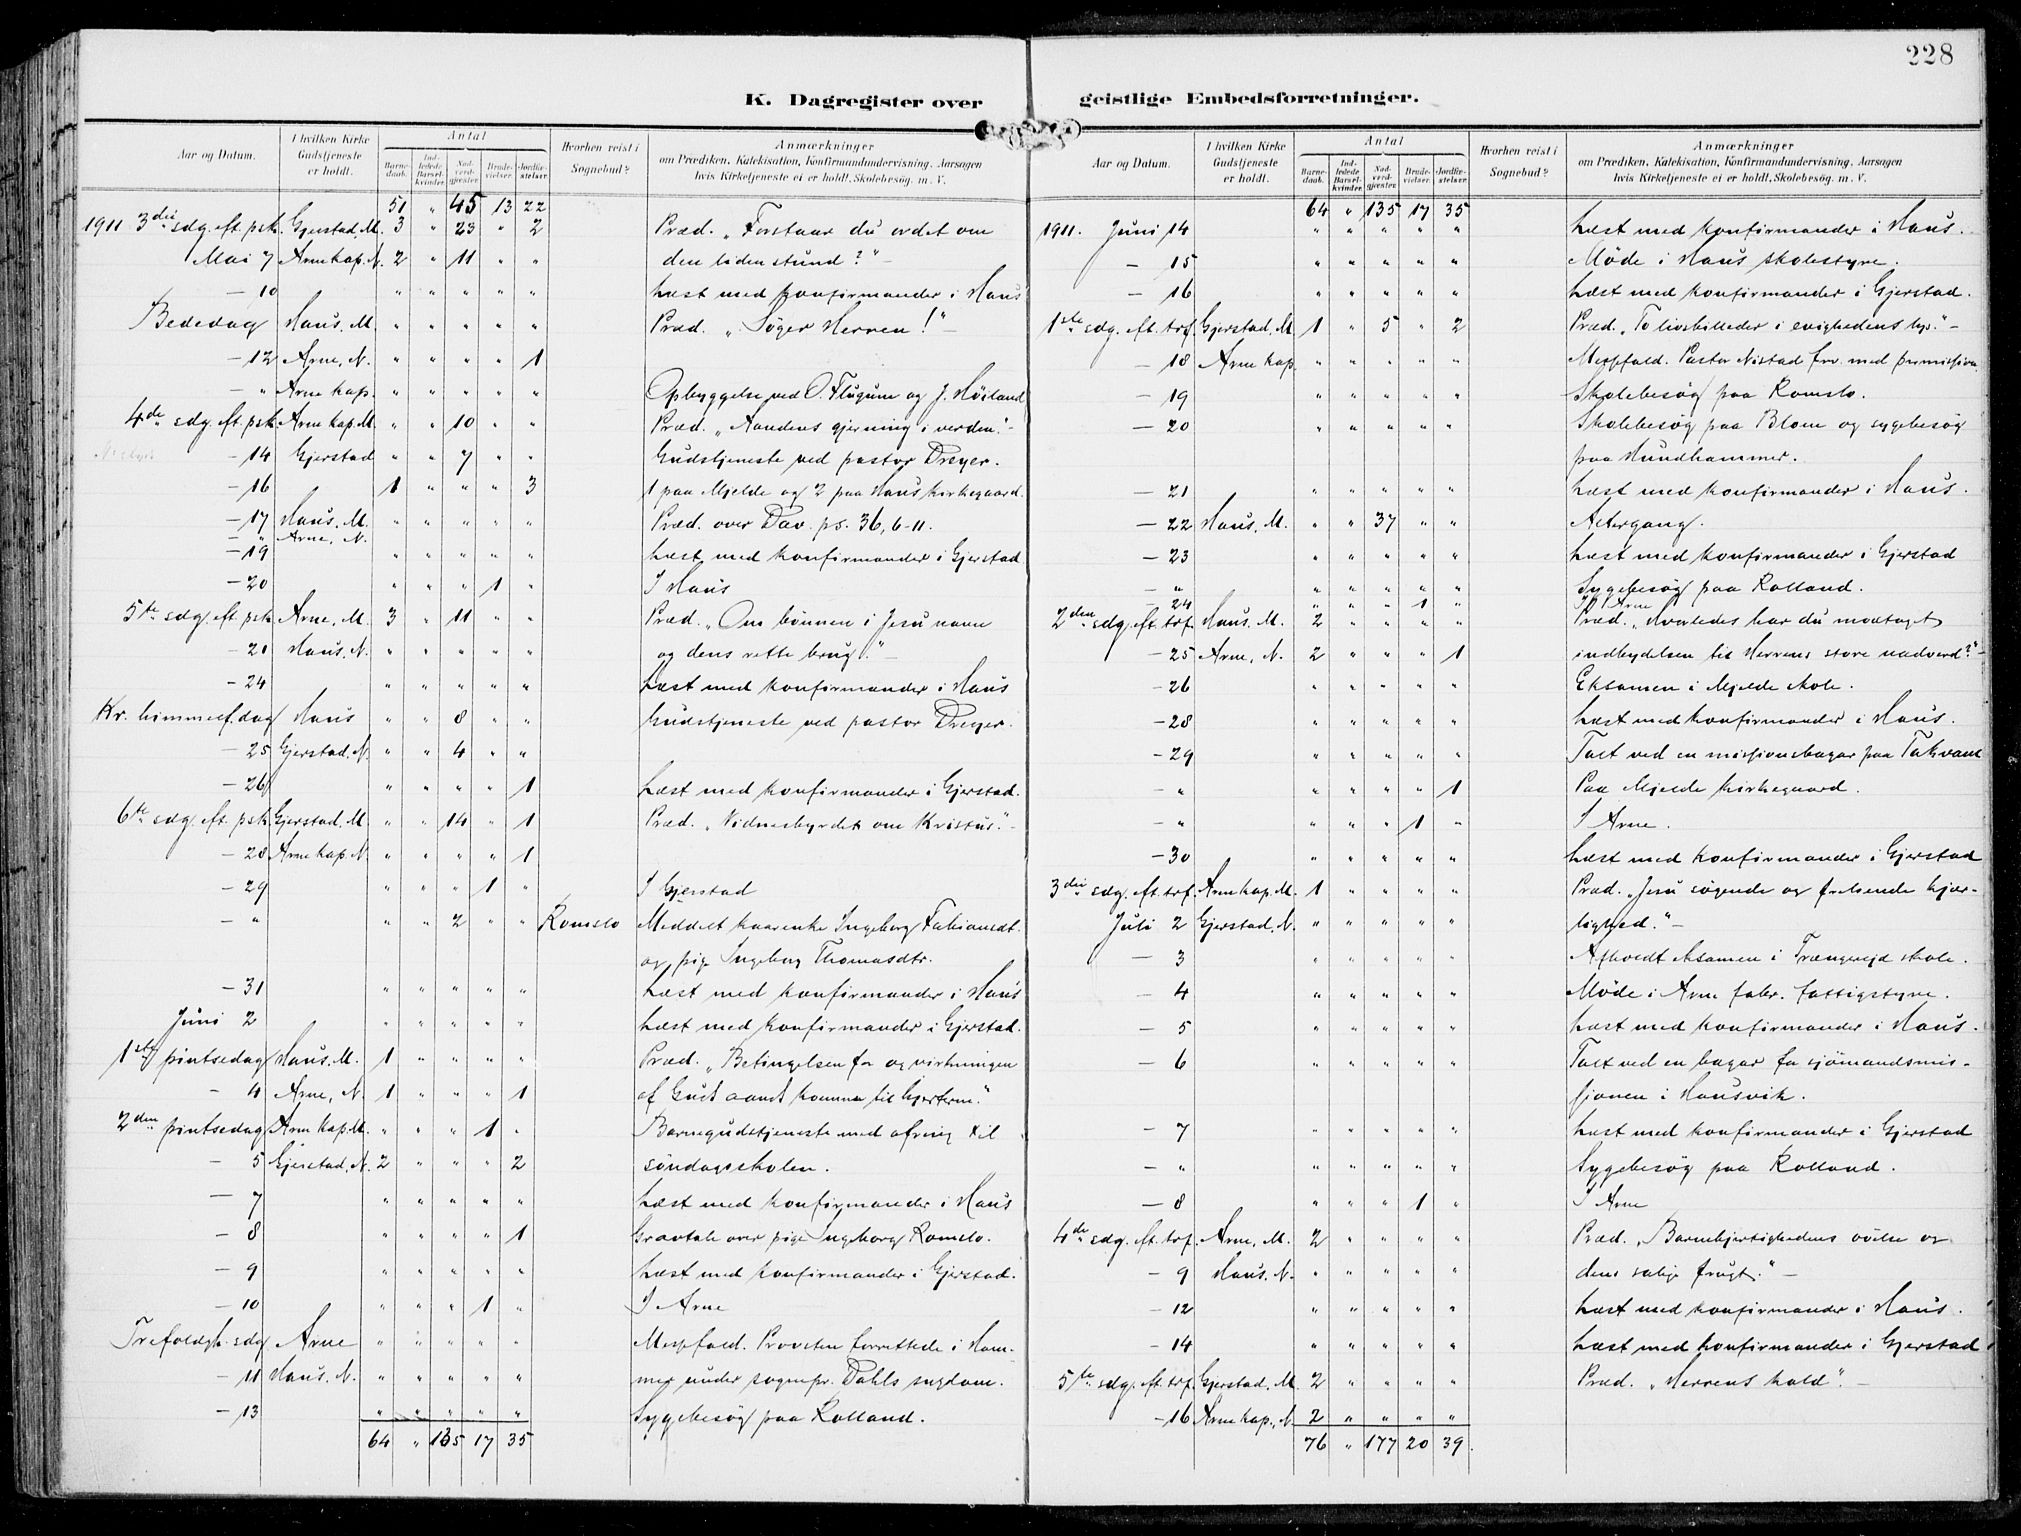 228
K. Dagregister over
Aar og Datum.
I hvilken Kirke Gudstjeneste er holdt.
Antal
Barnedaab.
Indledede Barselkvinder.
Nadverdgjester
Brudevielser.
Jordfæstelser.
Hvorhen reist i Sognebud?
Anmærkninger
om Prædiken, Katekisation, Konfirmandundervisning, Aarsagen
hvis Kirketjeneste ei er holdt, Skolebesøg, m. V.
51 " 45 13 22
1911 3die sdg. eft. psk. Gjerstad, M. 3 " 23 " 2 Præd. „Forstaar du ordet om
Mai 7 Arne kap. N. 2 " 11 " " den liden stund?" -
- 10 " " " " " Læst med konfirmander i Haus
Bededag Haus. M. " " " " " Præd. „Søger Herren!" -
- 12 Arne, N. " " " " 1
- " Arne kap. " " " " " Opbyggelse ved O. Flugum og J. Høiland
4de sdg. eft. psk. Arne kap. M. " " 10 " " Præd. „Aandens gjerning i verden." -
- 14 Gjerstad " " 7 " " Gudstjeneste ved pastor Dreyer.
- 16 1 " " " 3 1 paa Mjelde og 2 paa Haus kirkegaard.
- 17 Haus, M. " " " " " Præd. over Dav. ps. 36, 6-11.
- " Arne, N.
- 19 " " " " " Læst med konfirmander i Gjerstad
- 20 " " " 1 " I Haus
5te sdg. eft. psk. Arne, M. 3 " 11 " " Præd. „Om bønnen i Jesu navn
- 21 Haus, N. " " " " " og dens rette brug." -
- 24 " " " " " Læst med konfirmander i Haus
Kr. himmelf. dag Haus " " 8 " " Gudstjeneste ved pastor Dreyer.
- 25 Gjerstad, N. " " 4 " "
- 26 " " " " 1 Læst med konfirmander i Gjerstad.
6te sdg. eft. psk. Gjerstad, M. " " 14 " 1 Præd. „Vidnesbyrdet om Kristus." -
- 28 Arne kap. N. " " " " 1
- 29 " " " 1 " I Gjerstad
- " " " 2 " " Romslo Meddelt kaarenke Ingeborg Fabiansdt.
og pige Ingeborg Thomasdtr.
- 31 " " " " " Læst med konfirmander i Haus
Juni 2 " " " " " Læst med konfirmander i Gjerstad.
1ste pintsedag Haus, M. 1 " " " " Præd. „Betingelsen for og virkningen
- 4 Arne, N. 1 " " " 1 af Guds aands komme til hjerterne."
2den pintsedag Arne kap. M. " " " 1 " Barnegudstjeneste med ofring til
- 5 Gjerstad, N. 2 " " " 2 søndagsskolen.
- 7 " " " " " Læst med konfirmander i Haus
- 8 " " " " 1 Gravtale over pige Ingeborg Romslo.
- 9 " " " " " Læst med konfirmander i Gjerstad.
- 10 " " " 1 " I Arne
Trefoldigh. sdg Arne " " " " " Messfald. Provsten forrettede i Ham-
- 11 Haus. N. " " " " " mer under sognepr. Dahls sygdom.
- 13 " " " " " Sygebesøg paa Rolland.
64 " 135 17 35
geistlige Embedsforretninger.
Aar og Datum.
I hvilken Kirke Gudstjeneste er holdt.
Antal
Barnedaab.
Indledede Barselkvinder.
Nadverdgjester
Brudevielser.
Jordfæstelser.
Hvorhen reist i Sognebud?
Anmærkninger
om Prædiken, Katekisation, Konfirmandundervisning, Aarsagen
hvis Kirketjeneste ei er holdt, Skolebesøg, m. V.
64 " 135 17 35
1911. Juni 14 " " " " " Læst med konfirmander i Haus.
- 15 " " " " " Møde i Haus skolestyre.
- 16 " " " " " Læst med konfirmander i Gjerstad.
1ste sdg. eft. trf. Gjerstad, M. 1 " 5 " 2 Præd. „To livsbilleder i evighedens lys." -
- 18 Arne kap. " " " " " Messfald. Pastor Nistad frv. med permission
- 19 " " " " " Skolebesøg paa Romslo.
- 20 " " " " " Skolebesøg paa Blom og sygebesøg
paa Hundhammer.
- 21 " " " " " Læst med konfirmander i Haus.
- 22 Haus, M. " " 37 " " Altergang.
- 23 " " " " " Læst med konfirmander i Gjerstad
- " " " " " " Sygebesøg paa Rolland.
- 24 " " " 1 " I Arne
2den sdg. eft. trf. Haus. M. 2 " " " " Præd. „Hvorledes har du modtaget
- 25 Arne, N. 2 " " " 1 indbydelsen til Herrens store nadverd?" -
- 26 " " " " " Eksamen i Mjelde skole.
- 28 " " " " " Læst med konfirmander i Haus.
- 29 " " " " " Talt ved en missionsbazar paa Takvam
- " " " " " 1 Paa Mjelde kirkegaard.
- " " " " 1 " I Arne.
- 30 " " " " " Læst med konfirmander i Gjerstad
3die sdg. eft. trf. Arne kap. M. 1 " " " " Præd. „Jesu søgende og frelsende kjær-
Juli 2 Gjerstad, N. " " " " " lighed." -
- 3 " " " " " Afholdt eksamen i Trængereid skole.
- 4 " " " " " Møde i Arne fabr. fattigstyre.
- 5 " " " " " Læst med konfirmander i Haus.
- 6 " " " " " Talt ved en bazar for sjømandsmis-
sjonen i Hausvik.
- 7 " " " " " Læst med konfirmander i Gjerstad
- " " " " " " Sygebesøg paa Rolland.
- 8 " " " 1 " I Arne
4de sdg. eft. trf. Arne, M. 2 " " " " Præd. „Barmhjertighedens øvelse og
- 9 Haus. N. " " " " " dens salige frugt." -
- 12 " " " " " Læst med konfirmander i Haus.
- 14 " " " " " Læst med konfirmander i Gjerstad
5te sdg. eft. trf. Gjerstad, M. 2 " " " " Præd. „Herrens kald". -
- 16 Arne kap., N. 2 " " " "
76 " 177 20 39.